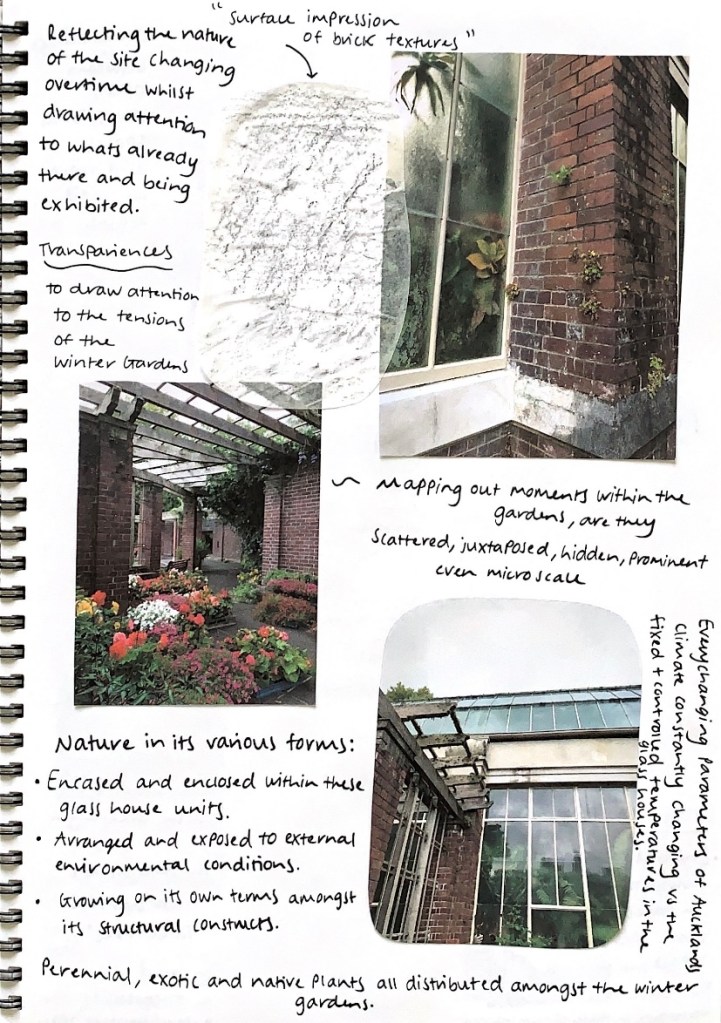 Reflecting the nature
of the site changing
overtime whilst
drawing attention
to whats already
there and being
exhibited.
"Surface impression
of brick textures"
Transpariences
to draw attention
to the tensions
of the
Winter Gardens
~ Mapping out moments within the
gardens, are they
scattered, juxtaposed, hidden, prominent
even microscale
Everychanging Parameters of Aucklands
Climate constantly changing vs the
fixed + controlled temperatures in the
glass houses.
Nature in its various forms:
• Encased and enclosed within these
glass house units.
• Arranged and exposed to external
environmental conditions.
• Growing on its own terms amongst
its structural constructs.
Perennial, exotic and native plants all distributed amongst the winter
gardens.